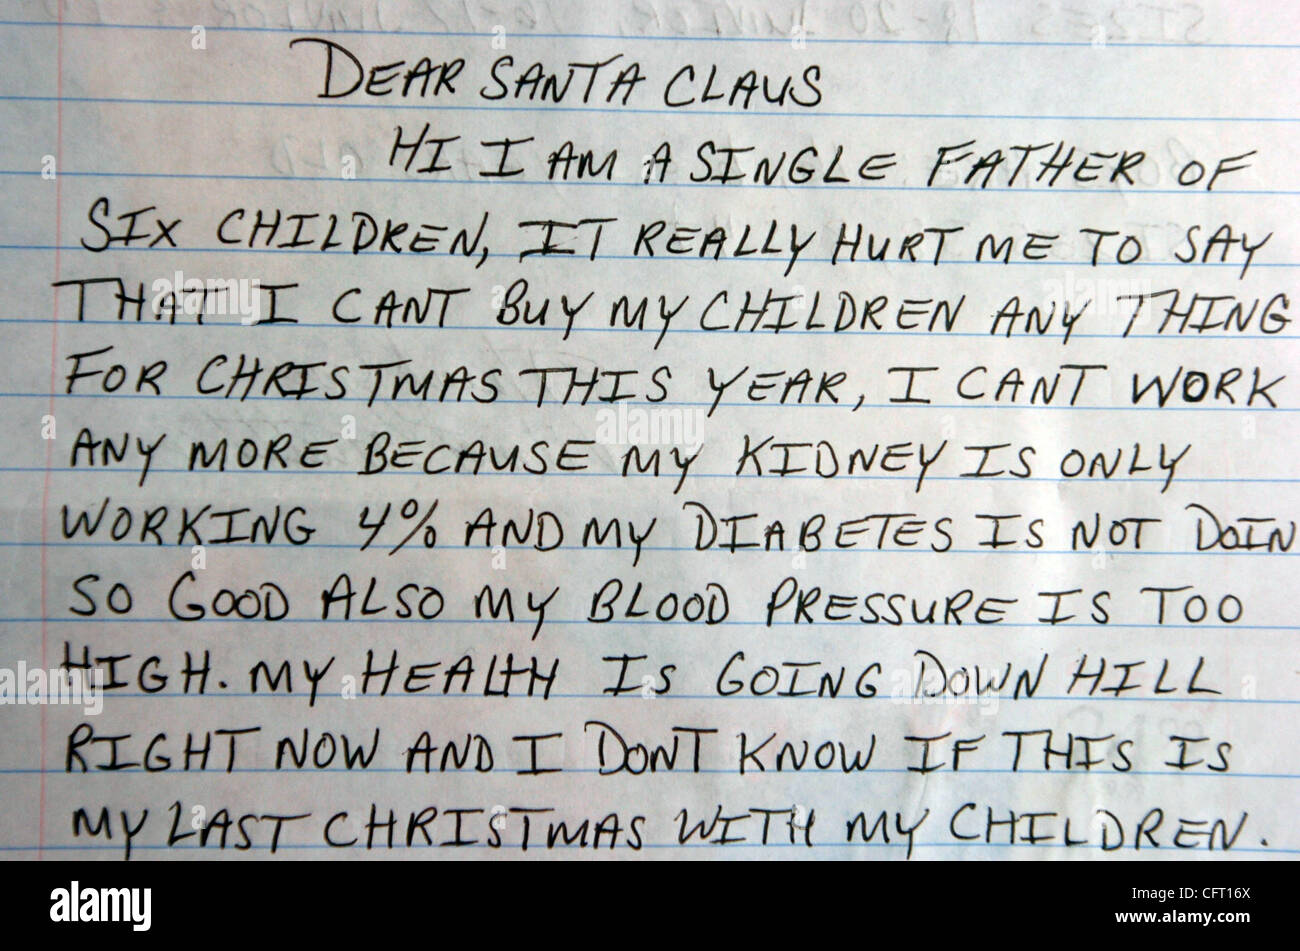 DEAR SANTA CLAUS
HI I AM A SINGLE FATHER OF
SIX CHILDREN, IT REALLY HURT ME TO SAY
THAT I CANT BUY MY CHILDREN ANY THING
FOR CHRISTMAS THIS YEAR, I CANT WORK
ANY MORE BECAUSE MY KIDNEY IS ONLY
WORKING 4% AND MY DIABETES IS NOT DOIN
SO GOOD ALSO MY BLOOD PRESSURE IS TOO
HIGH. MY HEALTH IS GOING DOWN HILL
RIGHT NOW AND I DONT KNOW IF THIS IS
MY LAST CHRISTMAS WITH MY CHILDREN.
alamy
Image ID: CFT16X
www.alamy.com